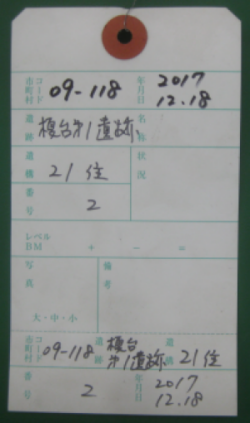 市町村コード 09-118 年月日 2017 12.18
遺跡 榎台第1遺跡 名称
遺構 21住 状況
番号 2
レベル BM + - =
写真 備考
大・中・小
市町村コード 09-118 遺跡 榎台第1遺跡 遺構 21住
番号 2 年月日 2017 12.18